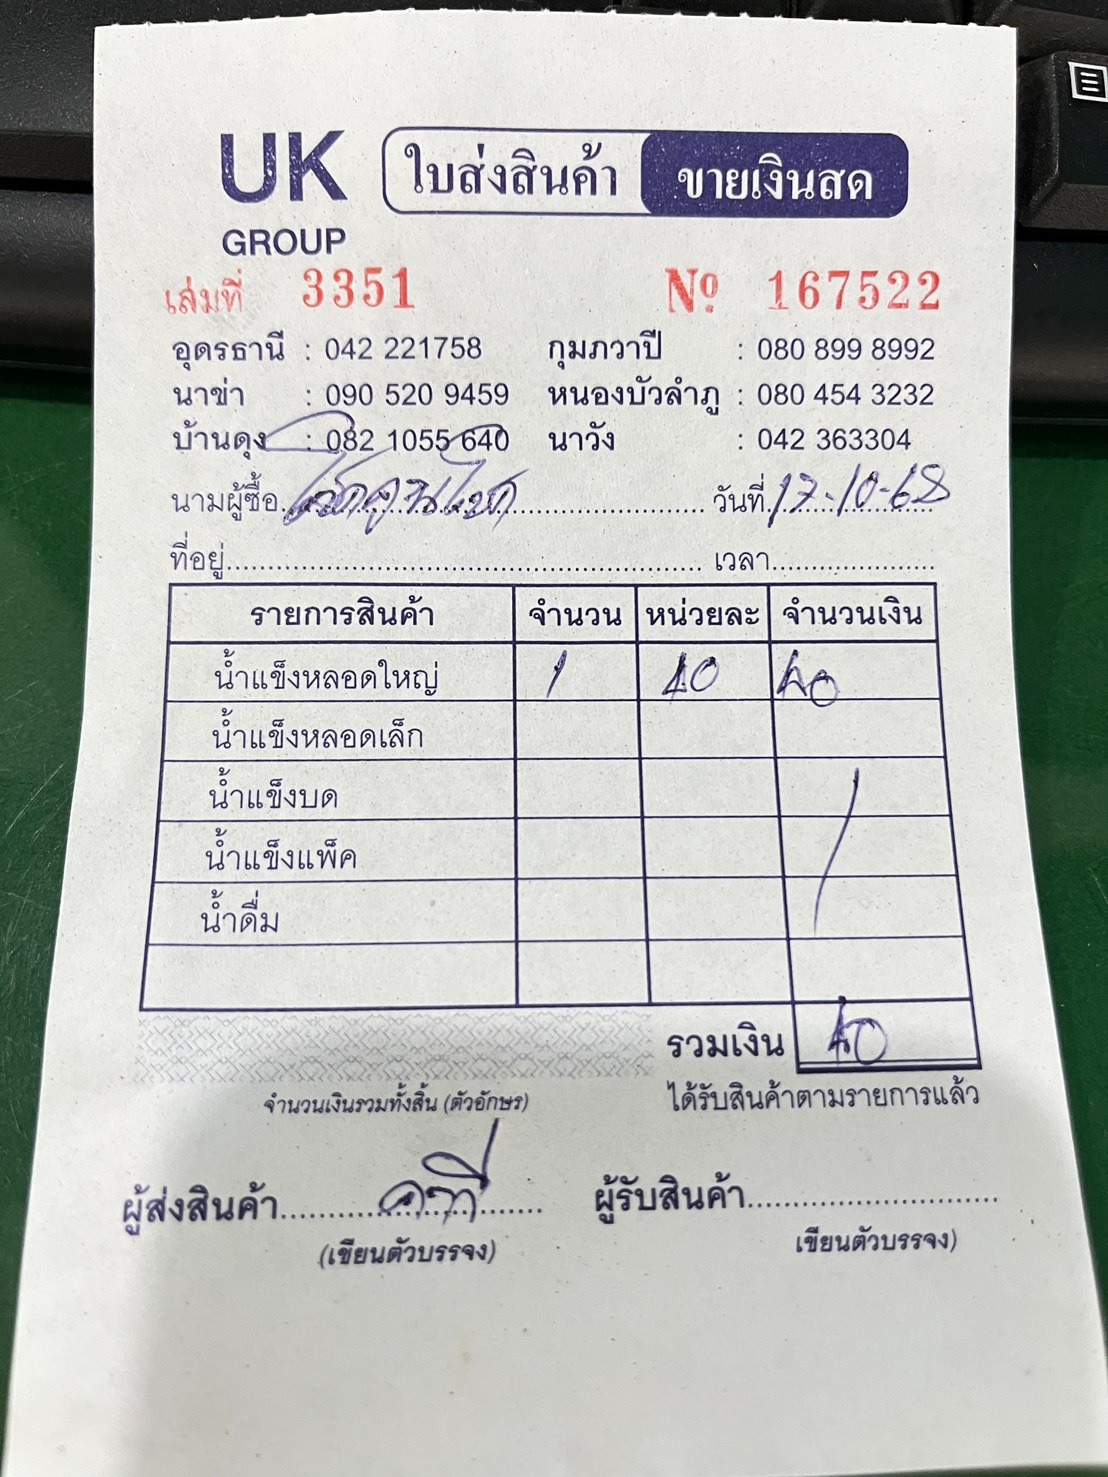 UK
GROUP
ใบส่งสินค้า ขายเงินสด
เล่มที่ 3351 Nº 167522
อุดรธานี : 042 221758 กุมภวาปี : 080 899 8992
นาข่า : 090 520 9459 หนองบัวลำภู : 080 454 3232
บ้านดุง : 082 1055 640 นาวัง : 042 363304
นามผู้ซื้อ วันที่ 17-10-68
ที่อยู่ เวลา
รายการสินค้า จำนวน หน่วยละ จำนวนเงิน
น้ำแข็งหลอดใหญ่ 1 40 40
น้ำแข็งหลอดเล็ก
น้ำแข็งบด
น้ำแข็งแพ็ค
น้ำดื่ม
รวมเงิน 40
จำนวนเงินรวมทั้งสิ้น (ตัวอักษร) ได้รับสินค้าตามรายการแล้ว
ผู้ส่งสินค้า ผู้รับสินค้า
(เขียนตัวบรรจง) เขียนตัวบรรจง)